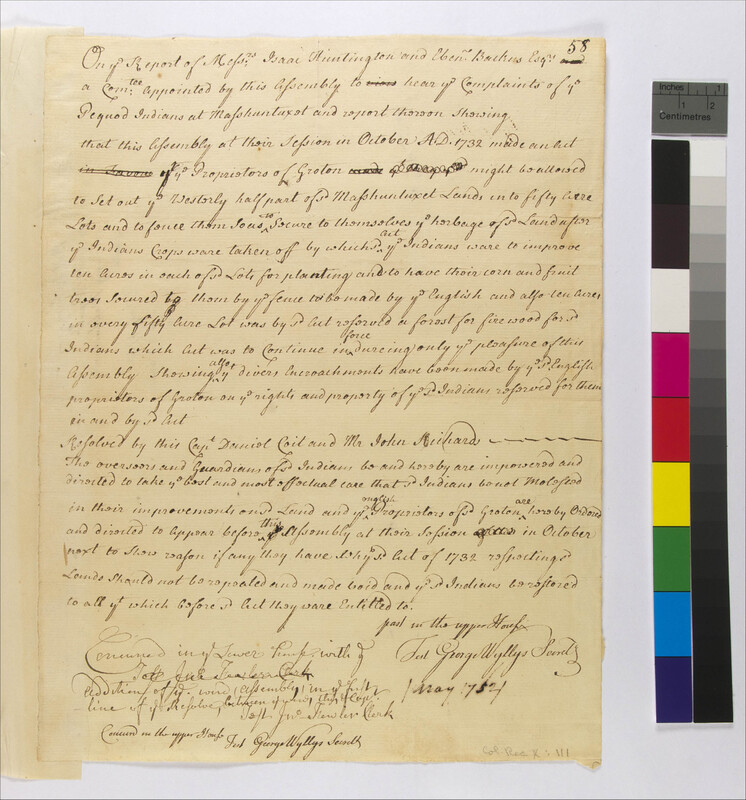 58
On ye Report of Messrs Isaac Huntington and Ebenr Backus Esqrs and
a Comtee Appointed by this Assembly to hear ye Complaints of ye
Pequod Indians at Masshuntuxet and report thereon Showing
that this Assembly at their Session in October A.D. 1732 made an Act
in favour of ye Proprietors of Groton made might be allowed
to Set out ye Westerly half part of sd Masshuntuxet Lands in to fifty Acre
Lots and to fence them so as to Secure to themselves ye herbage of sd Land after
ye Indians Crops ware taken off by which sd Act ye Indians ware to improve
ten Acres in each of sd Lots for planting and to have their corn and fruit
trees Secured to them by ye fence to be made by ye English and also ten Acres
in every fifty Acre Lot was by sd Act reserved a forest for firewood for sd
Indians which Act was to Continue in force dureing only ye pleasure of this
Assembly Showing also yt divers Encroachments have been made by ye sd English
proprietors of Groton on ye rights and property of ye sd Indians reserved for them
in and by sd Act
Resolved by this Capt Daniel Coit and Mr John Richards
The overseers and Guardians of sd Indians be and hereby are impowered and
directed to take ye best and most effectual care that sd Indians be not Molested
in their improvements on sd Land and ye english Proprietors of sd Groton are hereby Ordered
and directed to Appear before this Assembly at their Session in October
next to Shew reason if any they have why sd Act of 1732 respecting sd
Lands Should not be repealed and made void and ye sd Indians be restored
to all yt which before sd Act they ware Entitled to.
past in the upper House
Test George Wyllys Secretr
Concurred in ye Lower house with ye
Test Jno Fowler Clerk
Addition of ye word (Assembly) in ye first
line of ye Resolve, between ye words this & Capt
Test Jno Fowler Clerk
[May 1752]
Concurd in the upper House
Test George Wyllys Secretr
Col. Rec. X: 111
Inches
1
1
2
Centimetres